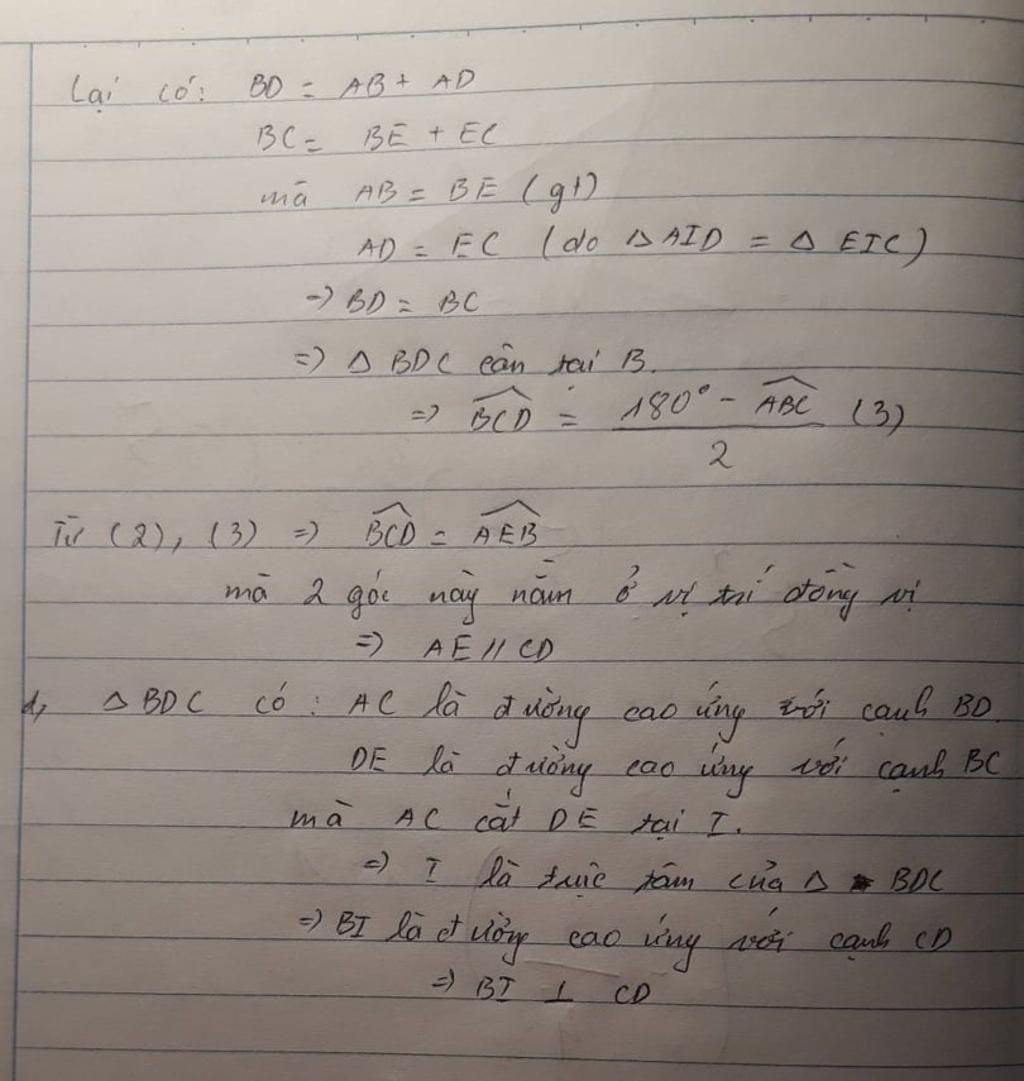 Lại có: BD = AB + AD
BC = BE + EC
mà AB = BE (gt)
AD = EC (do Δ AID = Δ EIC)
=> BD = BC
=> Δ BDC cân tại B.
=> \widehat{BCD} = \frac{180° - \widehat{ABC}}{2} (3)
Từ (2), (3) => \widehat{BCD} = \widehat{AEB}
mà 2 góc này nằm ở vị trí đồng vị
=> AE // CD
d, Δ BDC có: AC là đường cao ứng với cạnh BD.
DE là đường cao ứng với cạnh BC
mà AC cắt DE tại I.
=> I là trực tâm của Δ BDC
=> BI là đường cao ứng với cạnh CD
=> BI ⊥ CD